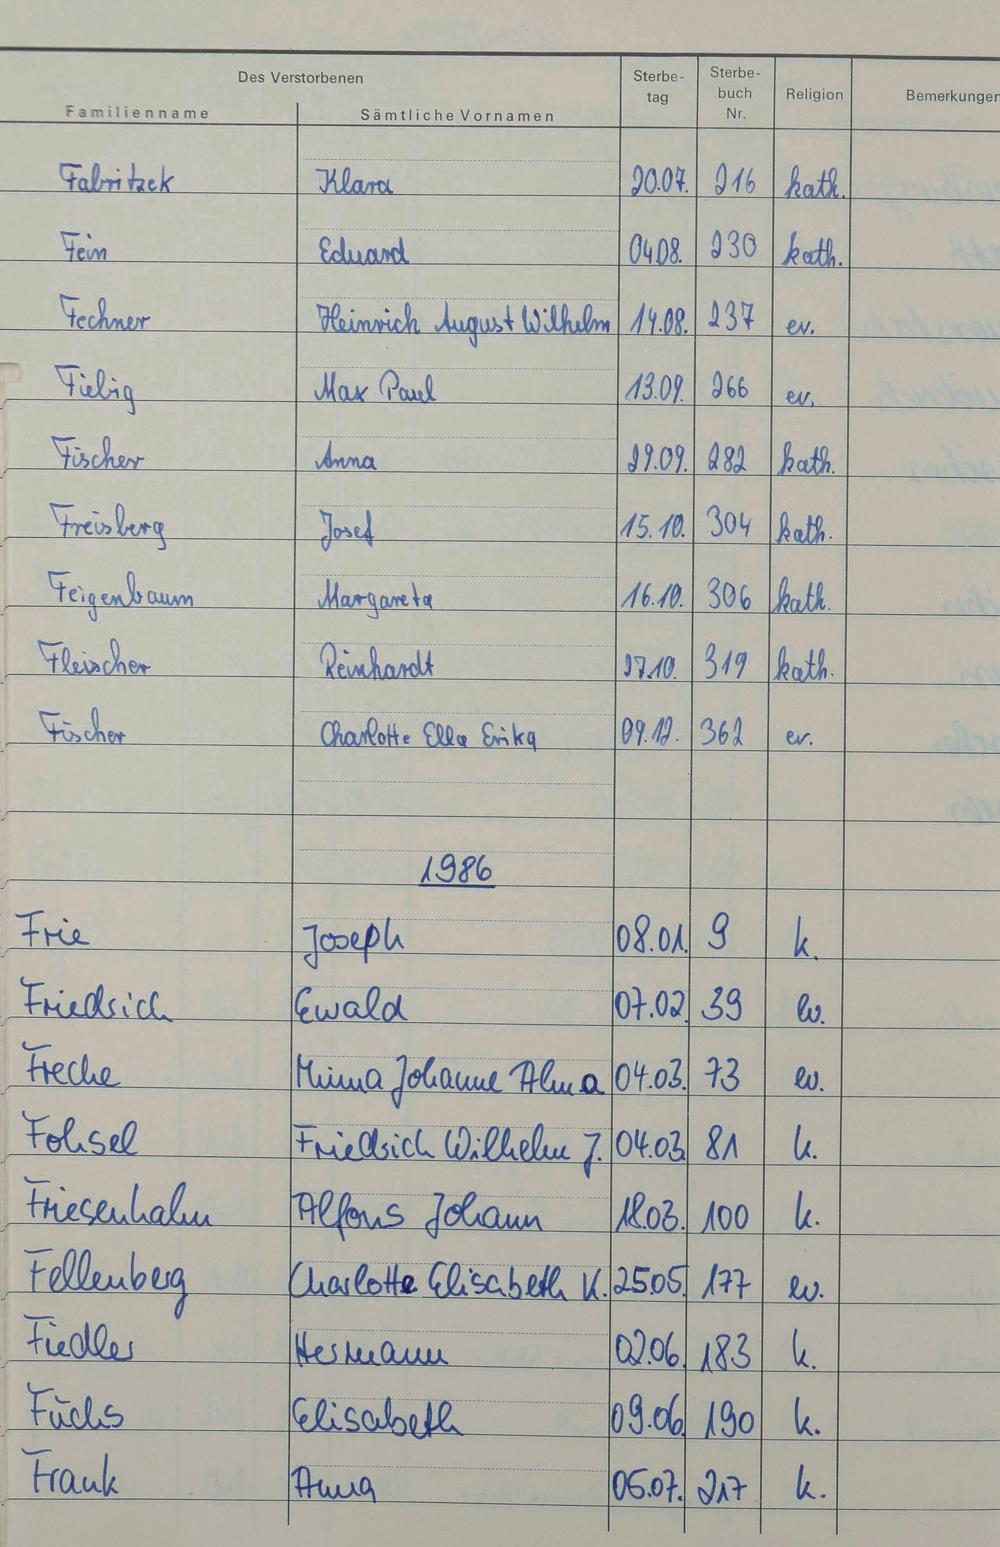 Des Verstorbenen Sterbe- Sterbe-
tag buch Religion Bemerkungen
Familienname Sämtliche Vornamen Nr.
Fabritzek Klara 20.07. 216 kath.
Fein Eduard 04.08. 230 kath.
Fechner Heinrich August Wilhelm 14.08. 237 ev.
Fiebig Max Paul 13.09. 266 ev.
Fischer Anna 29.09. 282 kath.
Freisberg Josef 15.10. 304 kath.
Feigenbaum Margareta 16.10. 306 kath.
Fleischer Reinhardt 27.10. 319 kath.
Fischer Charlotte Ella Erika 09.12. 362 ev.
1986
Frie Joseph 08.01. 9 k.
Friedrich Ewald 07.02. 39 ev.
Freche Minna Johanne Alma 04.03. 73 ev.
Fohsel Friedrich Wilhelm J. 04.03. 81 k.
Friesenhahn Alfons Johann 18.03. 100 k.
Fellenberg Charlotte Elisabeth K. 25.05. 177 ev.
Fiedler Hermann 02.06. 183 k.
Fuchs Elisabeth 09.06. 190 k.
Frank Anna 05.07. 217 k.